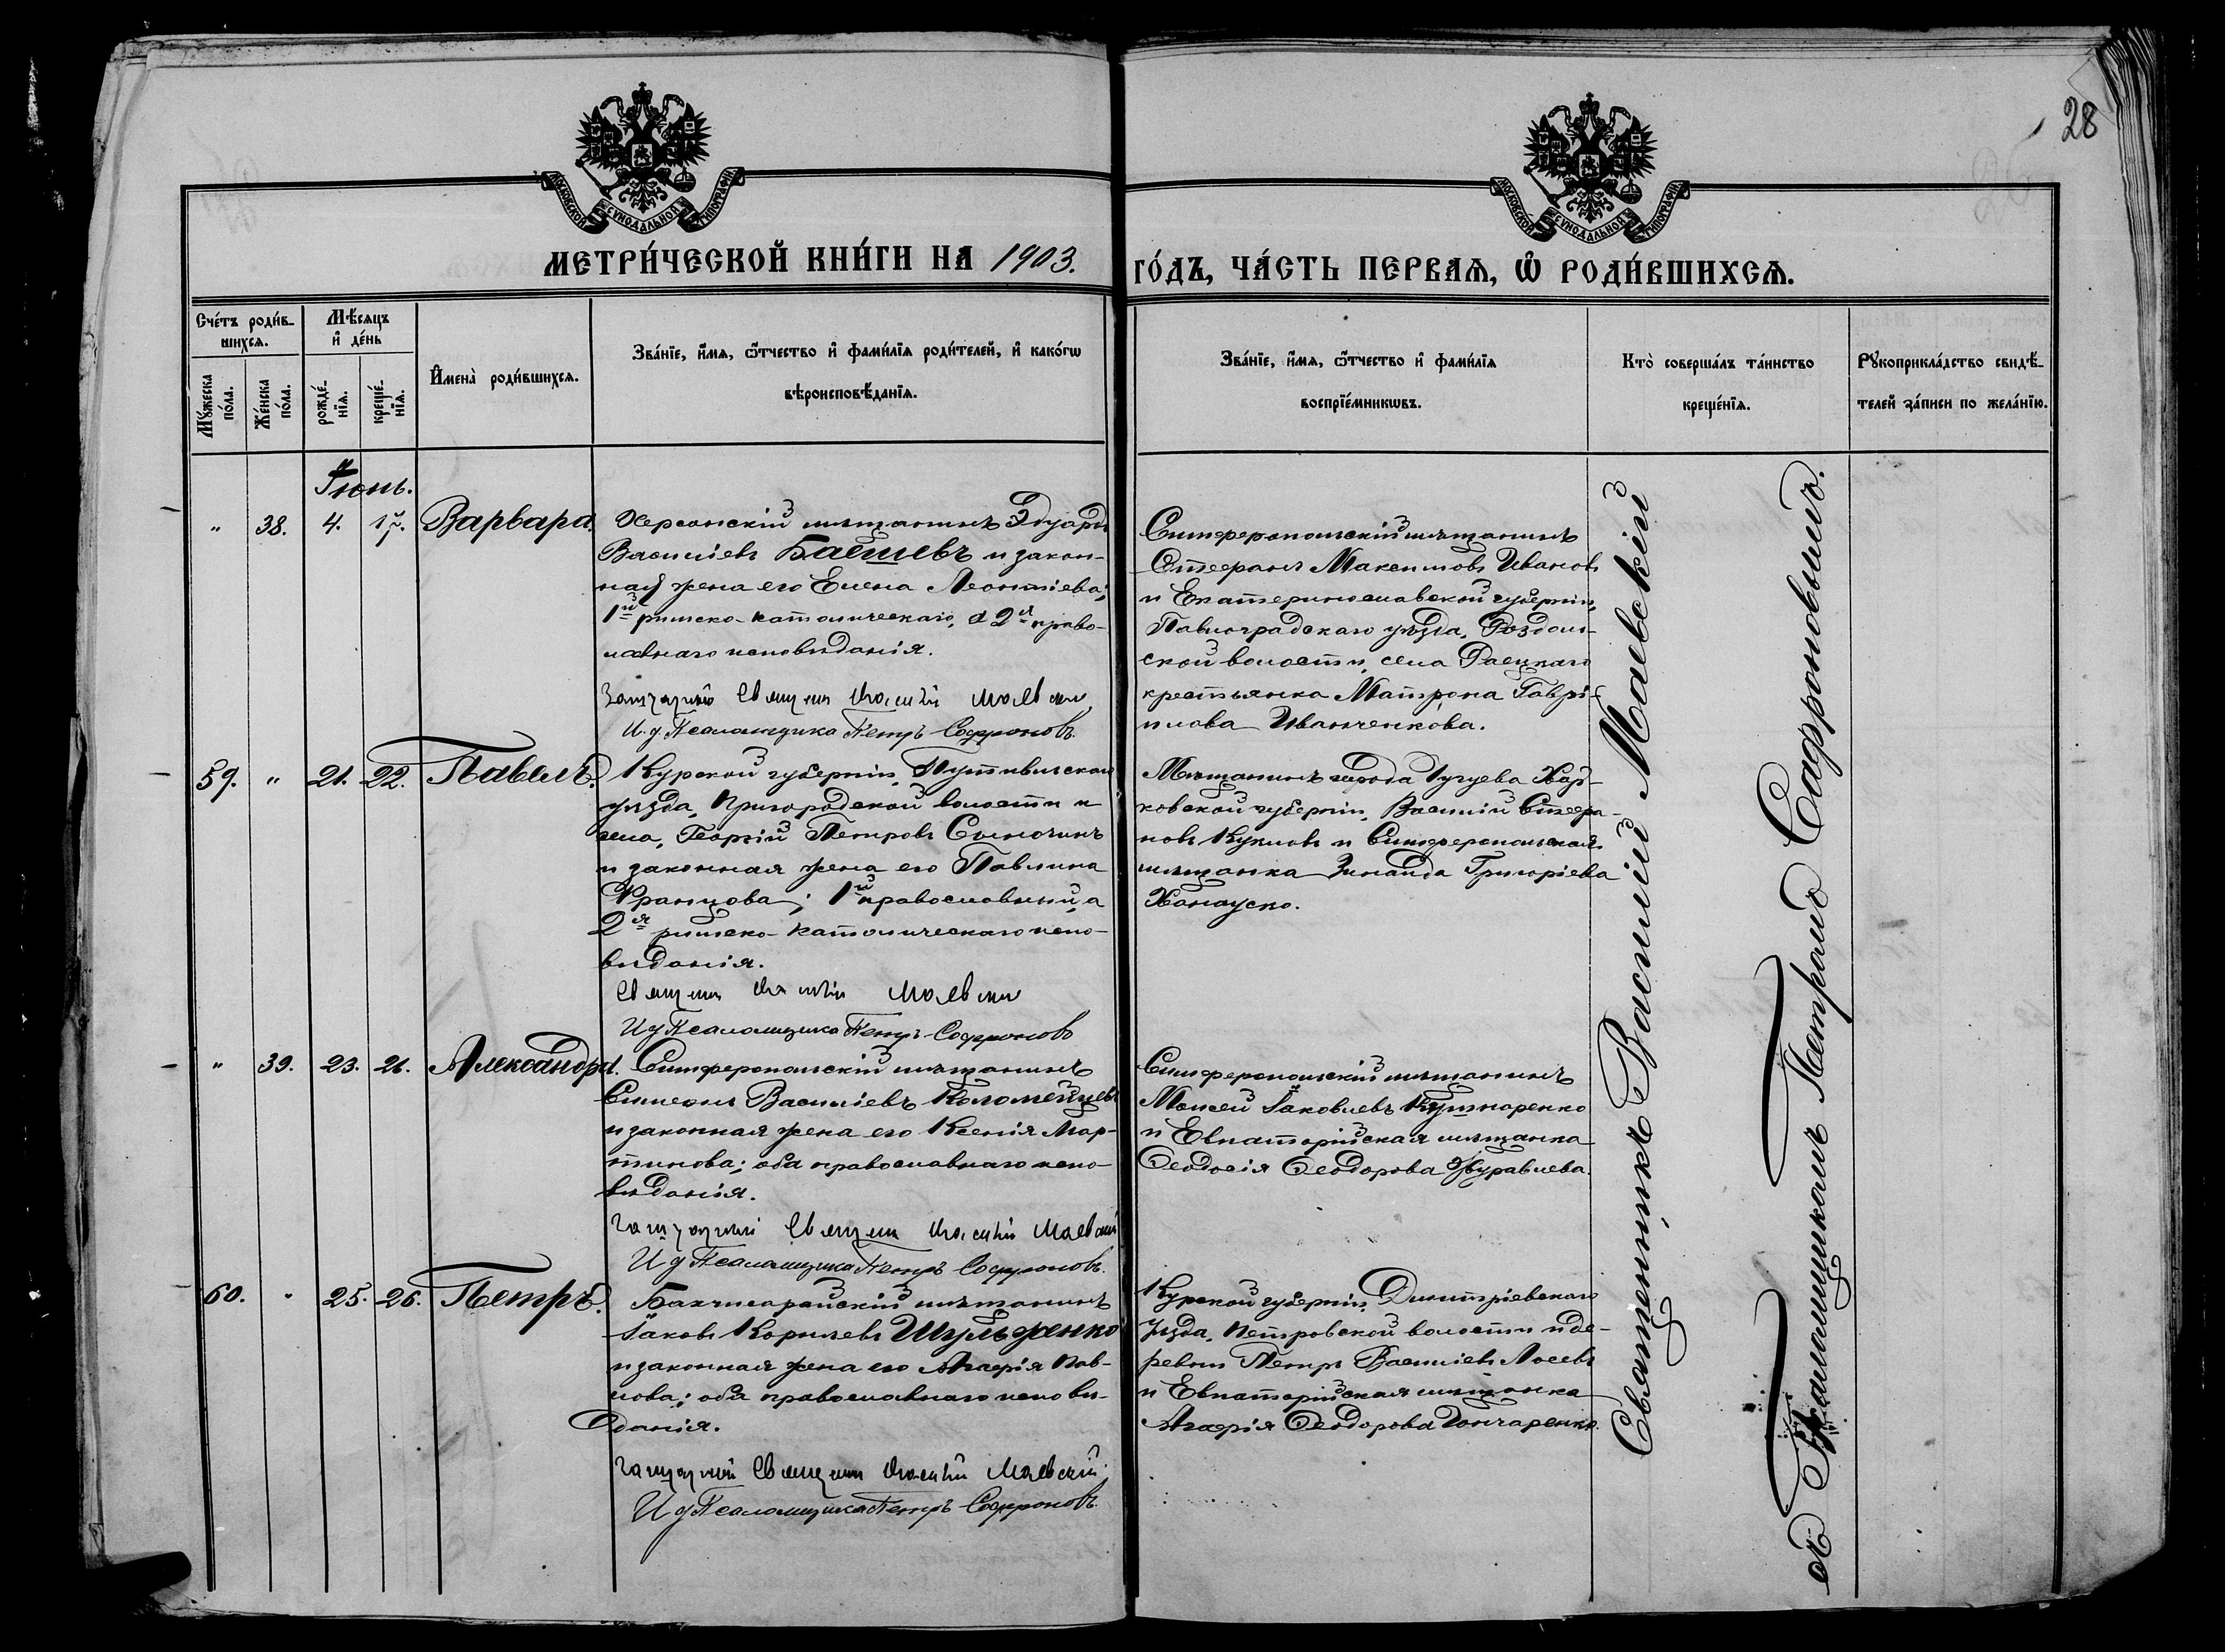 28
МОСКОВСКОЙ СУНОДАЛЬНОЙ ТИПОГРАФІИ
МОСКОВСКОЙ СУНОДАЛЬНОЙ ТИПОГРАФІИ
МЕТРИ́ЧЕСКОЙ КНИ́ГИ НА 1903.
ГО́ДЪ, ЧА́СТЬ ПЕРВАЯ, Ѡ РОДИ́ВШИХСЯ.
Сче́тъ роди́в-
шихся.
Мѣ́сяцъ
и҆ де́нь
Мꙋ́жеска
по́ла.
Же́нска
по́ла.
рожде́-
нїя.
креще́-
нїя.
И҆мена̀ роди́вшихся.
Зва́нїе, и҆́мя, ѻ҆́тчество и҆ фамѝлїя роди́телей, и҆ како́гѡ
вѣроисповѣ́данїя.
Зва́нїе, и҆́мя, ѻ҆́тчество и҆ фами́лїя
воспрїе́мникѡвъ.
Кто̀ соверша́лъ та́инство
креще́нїя.
Рꙋкоприкла́дство свидѣ́-
телей за́писи по жела́нїю.
Іюнь.
" 38. 4. 17. Варвара.
Херсонскій мѣщанинъ Эдуардъ
Васильевъ Баешевъ и закон-
ная жена его Елена Леонтіева;
1й римско-католическаго, а 2я право-
лавнаго исповѣданія.
Священ Василій Маевскій
И. д. Псаломщика Петръ Софроновъ.
Симферопольскій мѣщанинъ
Стефанъ Максимовъ Ивановъ
и Екатеринославской губерніи,
Павлоградскаго уѣзда, Роздоль-
ской волости, села Раецкаго
крестьянка Матрона Гаврі-
илова Иванченкова.
59. " 21. 22. Павелъ.
Курской губерніи, Путивльскаго
уѣзда, Пригородской волости и
села, Георгій Петровъ Сыночинъ
и законная жена его Павлина
Францова; 1й православный, а
2я римско-католическаго испо-
вѣданія.
Священ Василій Маевскій
И д Псаломщика Петръ Софроновъ
Мѣщанинъ города Чугуева Харь-
ковской губерніи, Василій Стефа-
новъ Кукловъ и Симферопольская
мѣщанка Зинаида Григоріева
Ханауско.
" 39. 23. 26. Александра.
Симферопольскій мѣщанинъ
Симеонъ Васильевъ Коломейцевъ
и законная жена его Ксенія Мар-
тинова; оба православнаго испо-
вѣданія.
Священ Василій Маевскій
И д Псаломщика Петръ Софроновъ.
Симферопольскій мѣщанинъ
Моисей Іаковлевъ Кушнаренко
и Евпаторійская мѣщанка
Ѳеодосія Ѳеодорова Журавлева.
60. " 25. 26. Петръ.
Бахчисарайскій мѣщанинъ
Іаковъ Корнилевъ Шульженко
и законная жена его Агафія Пав-
лова; оба православнаго исповѣ-
данія.
Священ Василій Маевскій
И д Псаломщика Петръ Софроновъ.
Курской губерніи, Димитріевскаго
уѣзда, Петровской волости и де-
ревни Петръ Васильевъ Лосевъ
и Евпаторійская мѣщанка
Агафія Ѳеодорова Гончаренко.
Священникъ Василій Маевскій
съ Псаломщикомъ Петромъ Софроновымъ.